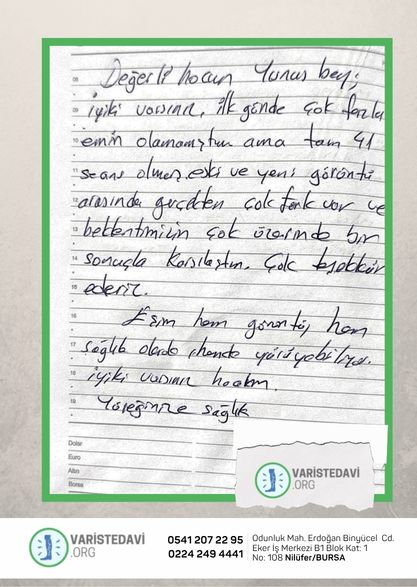 08 Değerli hocam Yunus bey;
09 iyiki varsınız, ilk günde çok fazla
10 emin olamamıştım ama tam 41
11 seans olmuş, eski ve yeni görüntü
12 arasında gerçekten çok fark var ve
13 beklentimizin çok üzerinde bir
14 sonuçla karşılaştım. Çok teşekkür
15 ederiz.
16 Eşim hem görüntü, hem
17 sağlık olarak yürüyebiliyor.
18 iyiki varsınız hocam.
19 Yüreğinize sağlık
Dolar
Euro
Altın
Borsa
VARİSTEDAVİ
.ORG
VARİSTEDAVİ
.ORG
0541 207 22 95
0224 249 4441
Odunluk Mah. Erdoğan Binyücel Cd.
Eker İş Merkezi B1 Blok Kat: 1
No: 108 Nilüfer/BURSA